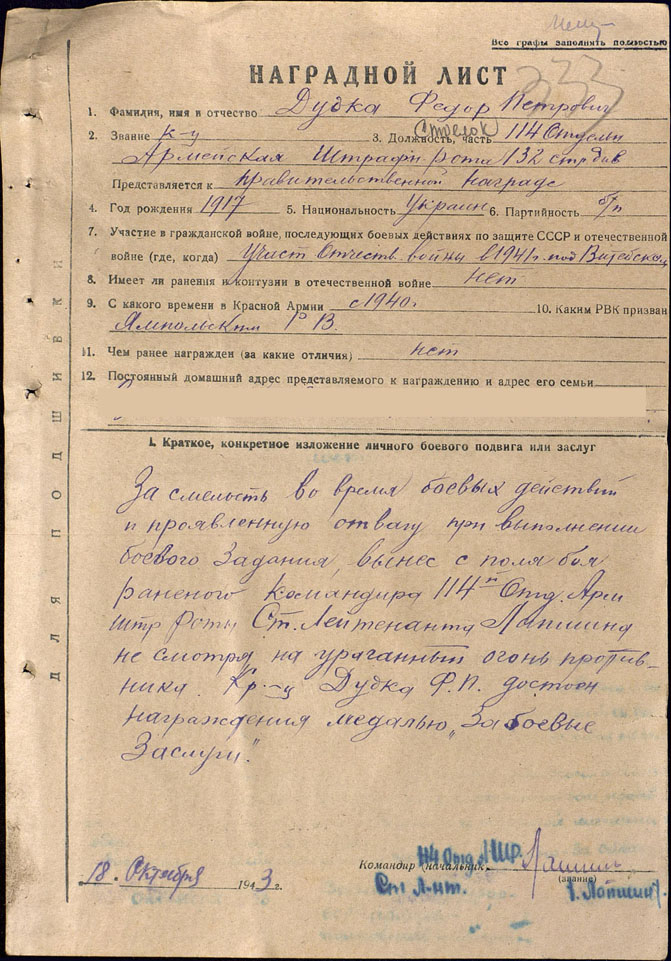 Все графы заполнять полностью
333
НАГРАДНОЙ ЛИСТ
1. Фамилия, имя и отчество Дудка Федор Петрович
2. Звание к-ц 3. Должность, часть Стрелок 114 Отдельн
Армейская Штрафн рота 132 стр див
Представляется к правительственной награде
4. Год рождения 1917 5. Национальность Украин 6. Партийность б/п
7. Участие в гражданской войне, последующих боевых действиях по защите СССР и отечественной
войне (где, когда) участ Отечеств. войны в 1941 г. под Витебском
8. Имеет ли ранения и контузии в отечественной войне нет
9. С какого времени в Красной Армии с 1940 г. 10. Каким РВК призван
Ямпольским Р В.
11. Чем ранее награжден (за какие отличия) нет
12. Постоянный домашний адрес представляемого к награждению и адрес его семьи
I. Краткое, конкретное изложение личного боевого подвига или заслуг
За смелость во время боевых действий
и проявленную отвагу при выполнении
боевого Задания, вынес с поля боя
раненого командира 114й Отд. Арм
штр роты Ст. Лейтенанта Лапшина
не смотря на ураганный огонь против-
ника. Кр-ц Дудка Ф. П. достоен
награждения медалью „За боевые
Заслуги."
Командир (начальник) 114 Отд АШР.
18. Октября 1943 г.
(звание)
Ст Л-нт. Лапшин
ДЛЯ ПОДШИВКИ